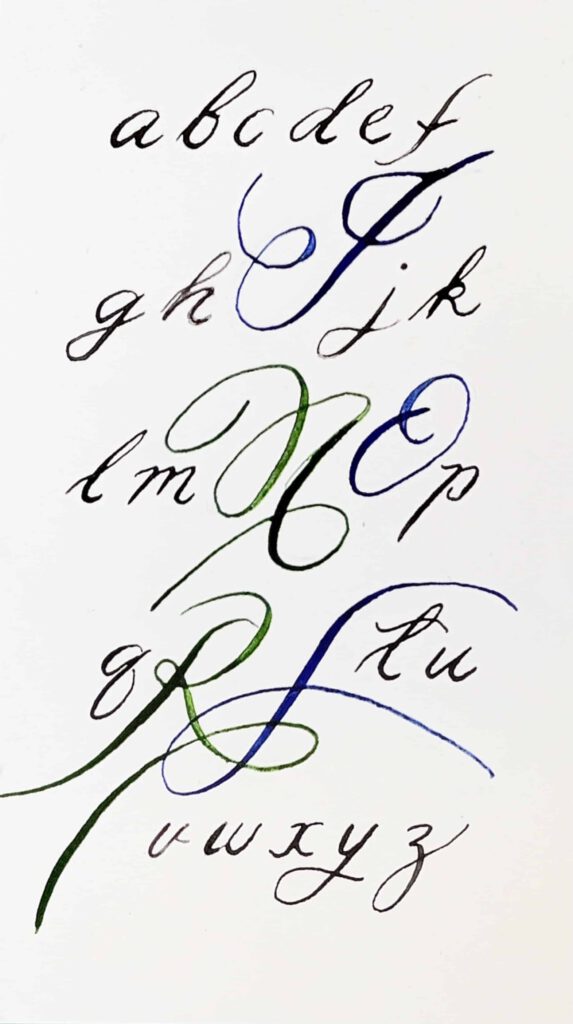 a b c d e f
g h I j k
l m N O p
q R S t u
v w x y z